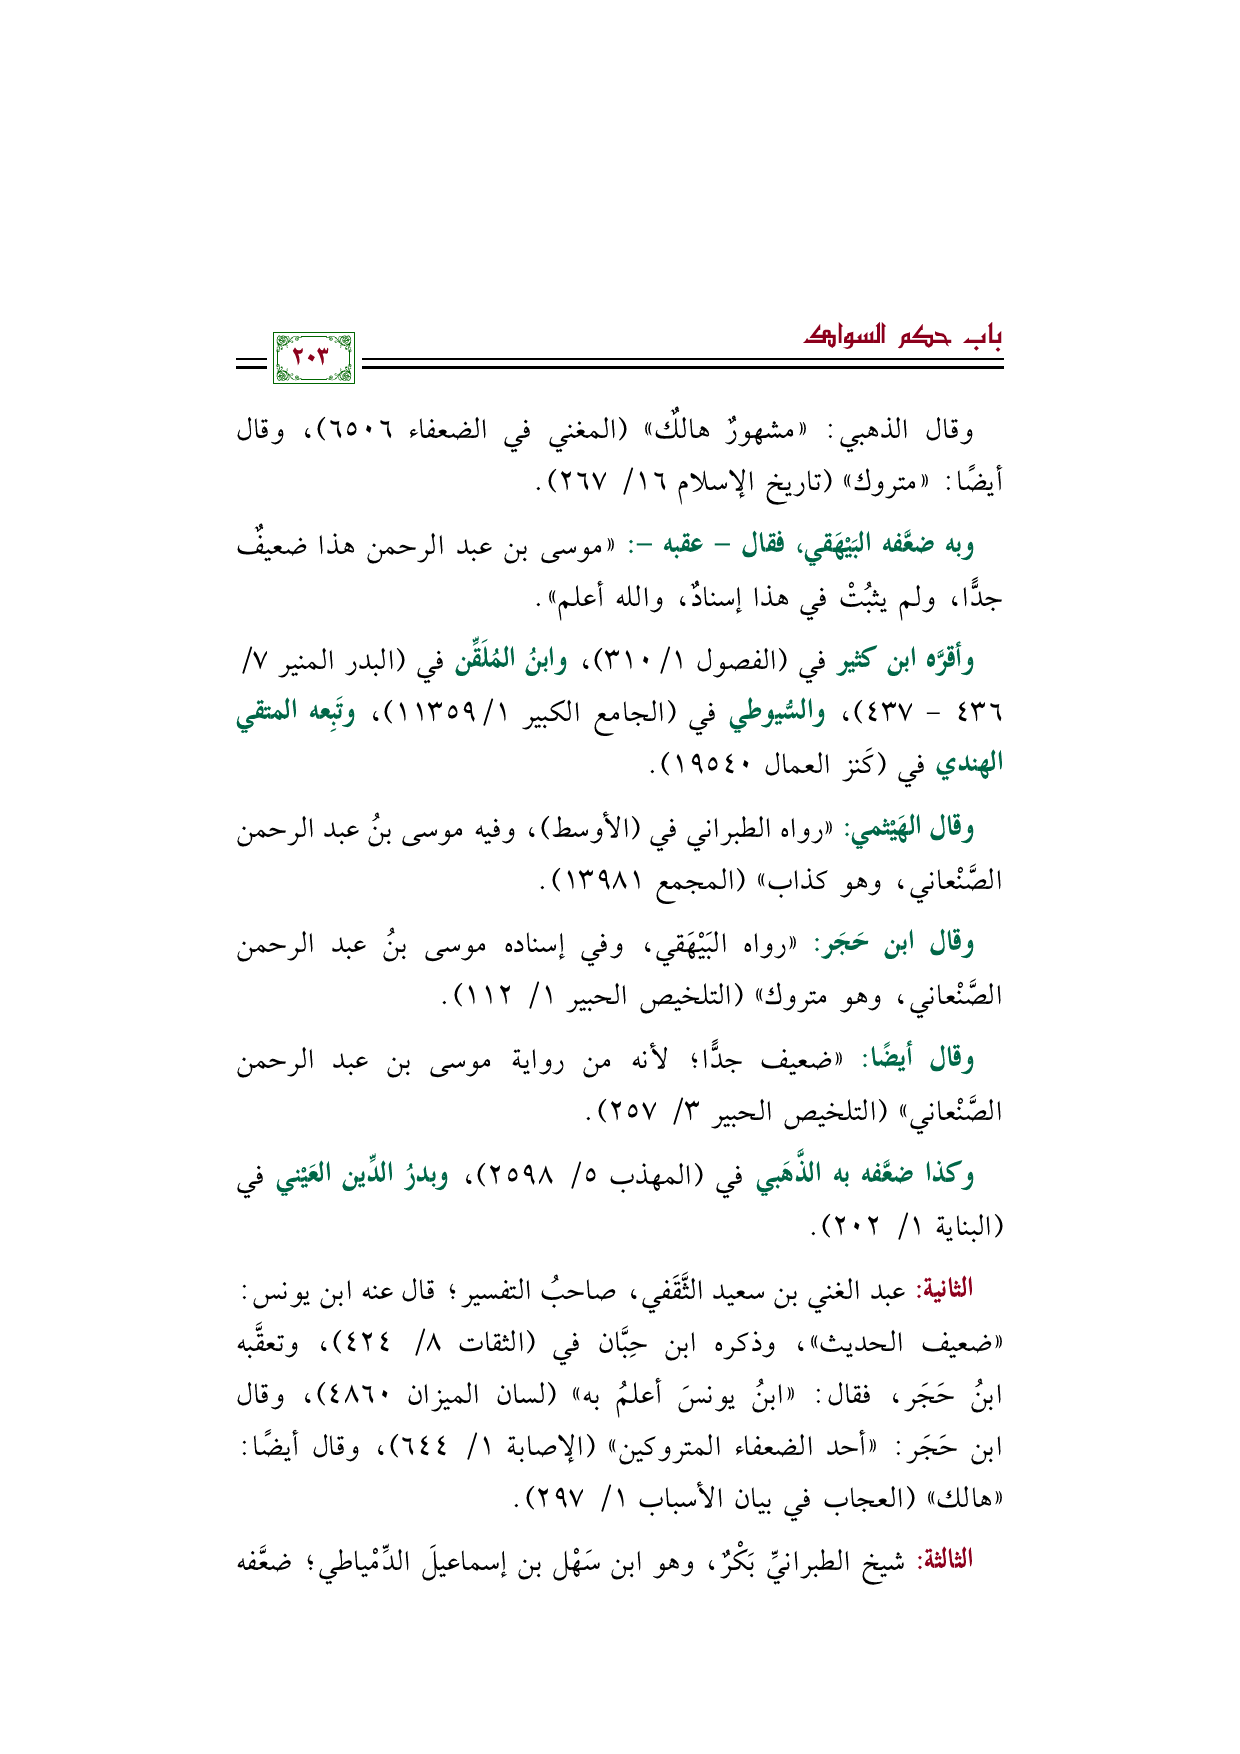 باب حكم السواك
٢٠٣
وقال الذهبي: «مشهورٌ هالكٌ» (المغني في الضعفاء ٦٥٠٦)، وقال
أيضًا: «متروك» (تاريخ الإسلام ١٦/ ٢٦٧).
وبه ضعَّفه البَيْهَقي، فقال – عقبه –: «موسى بن عبد الرحمن هذا ضعيفٌ
جدًّا، ولم يثبُتْ في هذا إسنادٌ، والله أعلم».
وأقرَّه ابن كثير في (الفصول ١/ ٣١٠)، وابنُ المُلَقِّن في (البدر المنير ٧/
٤٣٦ – ٤٣٧)، والسُّيوطي في (الجامع الكبير ١/ ١١٣٥٩)، وتَبِعه المتقي
الهندي في (كَنز العمال ١٩٥٤٠).
وقال الهَيْثمي: «رواه الطبراني في (الأوسط)، وفيه موسى بنُ عبد الرحمن
الصَّنْعاني، وهو كذاب» (المجمع ١٣٩٨١).
وقال ابن حَجَر: «رواه البَيْهَقي، وفي إسناده موسى بنُ عبد الرحمن
الصَّنْعاني، وهو متروك» (التلخيص الحبير ١/ ١١٢).
وقال أيضًا: «ضعيف جدًّا؛ لأنه من رواية موسى بن عبد الرحمن
الصَّنْعاني» (التلخيص الحبير ٣/ ٢٥٧).
وكذا ضعَّفه به الذَّهَبي في (المهذب ٥/ ٢٥٩٨)، وبدرُ الدِّين العَيْني في
(البناية ١/ ٢٠٢).
الثانية: عبد الغني بن سعيد الثَّقَفي، صاحبُ التفسير؛ قال عنه ابن يونس:
«ضعيف الحديث»، وذكره ابن حِبَّان في (الثقات ٨/ ٤٢٤)، وتعقَّبه
ابنُ حَجَر، فقال: «ابنُ يونسَ أعلمُ به» (لسان الميزان ٤٨٦٠)، وقال
ابن حَجَر: «أحد الضعفاء المتروكين» (الإصابة ١/ ٦٤٤)، وقال أيضًا:
«هالك» (العجاب في بيان الأسباب ١/ ٢٩٧).
الثالثة: شيخ الطبرانيِّ بَكْرٌ، وهو ابن سَهْل بن إسماعيلَ الدِّمْياطي؛ ضعَّفه